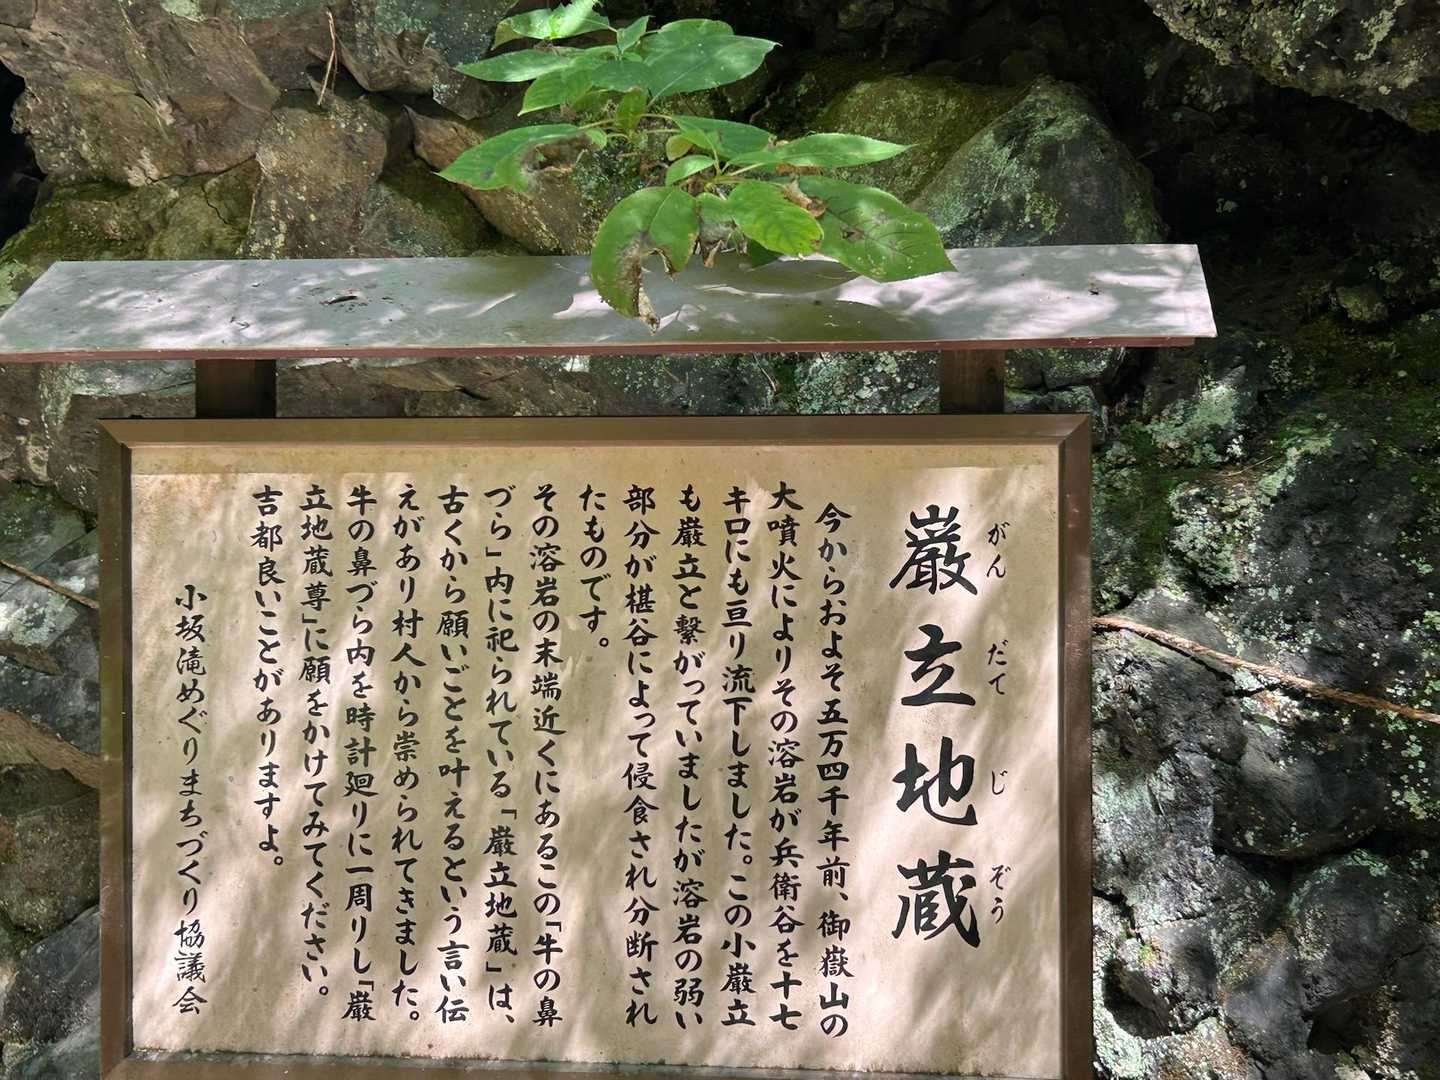 巌立地蔵
がんだてじぞう
今からおよそ五万四千年前、御嶽山の
大噴火によりその溶岩が兵衛谷を十七
キロにも亘り流下しました。この小巌立
も巌立と繋がっていましたが溶岩の弱い
部分が椹谷によって侵食され分断され
たものです。
その溶岩の末端近くにあるこの「牛の鼻
づら」内に祀られている「巌立地蔵」は、
古くから願いごとを叶えるという言い伝
えがあり村人から崇められてきました。
牛の鼻づら内を時計廻りに一周りし「巌
立地蔵尊」に願をかけてみてください。
吉都良いことがありますよ。
小坂滝めぐりまちづくり協議会